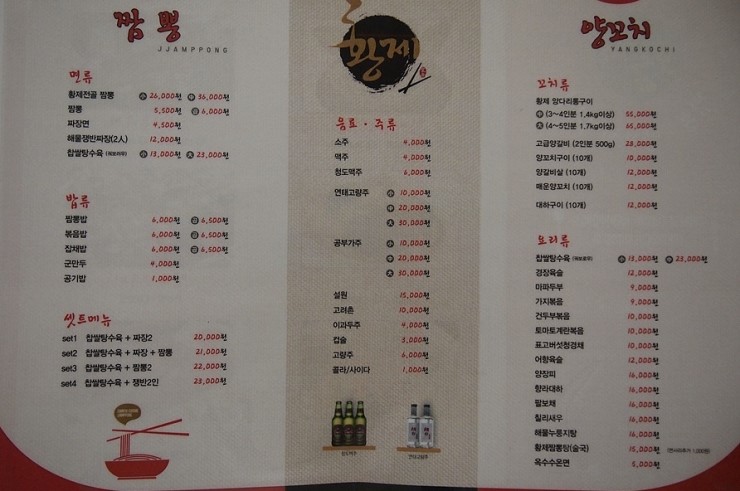 짬뽕
JJAMPPONG
면류
황제전골 짬뽕 小 26,000원 中 36,000원
짬뽕 5,500원 곱 6,000원
짜장면 4,500원
해물쟁반짜장(2人) 12,000원
찹쌀탕수육 小 13,000원 大 23,000원
밥류
짬뽕밥 6,000원 곱 6,500원
볶음밥 6,000원 곱 6,500원
잡채밥 6,000원 곱 6,500원
군만두 4,000원
공기밥 1,000원
셋트메뉴
set1 찹쌀탕수육 + 짜장2 20,000원
set2 찹쌀탕수육 + 짜장 + 짬뽕 21,000원
set3 찹쌀탕수육 + 짬뽕2 22,000원
set4 찹쌀탕수육 + 쟁반2인 23,000원
황제
음료 · 주류
소주 4,000원
맥주 4,000원
청도맥주 6,000원
연태고량주 小 10,000원
中 20,000원
大 30,000원
공부가주 小 10,000원
中 20,000원
大 30,000원
설원 15,000원
고려촌 10,000원
이과두주 4,000원
캡술 5,000원
고량주 6,000원
콜라/사이다 1,000원
청도맥주
연태고량주
양꼬치
YANGKOCHI
꼬치류
황제 양다리통구이
中 (3~4인분 1.4kg이상) 55,000원
大 (4~5인분 1.7kg이상) 65,000원
고급양갈비 (2인분 500g) 23,000원
양꼬치구이 (10개) 10,000원
양갈비살 (10개) 12,000원
매운양꼬치 (10개) 12,000원
대하구이 (10개) 12,000원
요리류
찹쌀탕수육 小 13,000원 中 23,000원
경장육슬 12,000원
마파두부 9,000원
가지볶음 9,000원
건두부볶음 10,000원
토마토계란볶음 10,000원
표고버섯청경채 10,000원
어향육슬 12,000원
양장피 16,000원
향라대하 16,000원
팔보채 16,000원
칠리새우 16,000원
해물누룽지탕 16,000원
황제짬뽕탕(술국) 15,000원
옥수수온면 5,000원